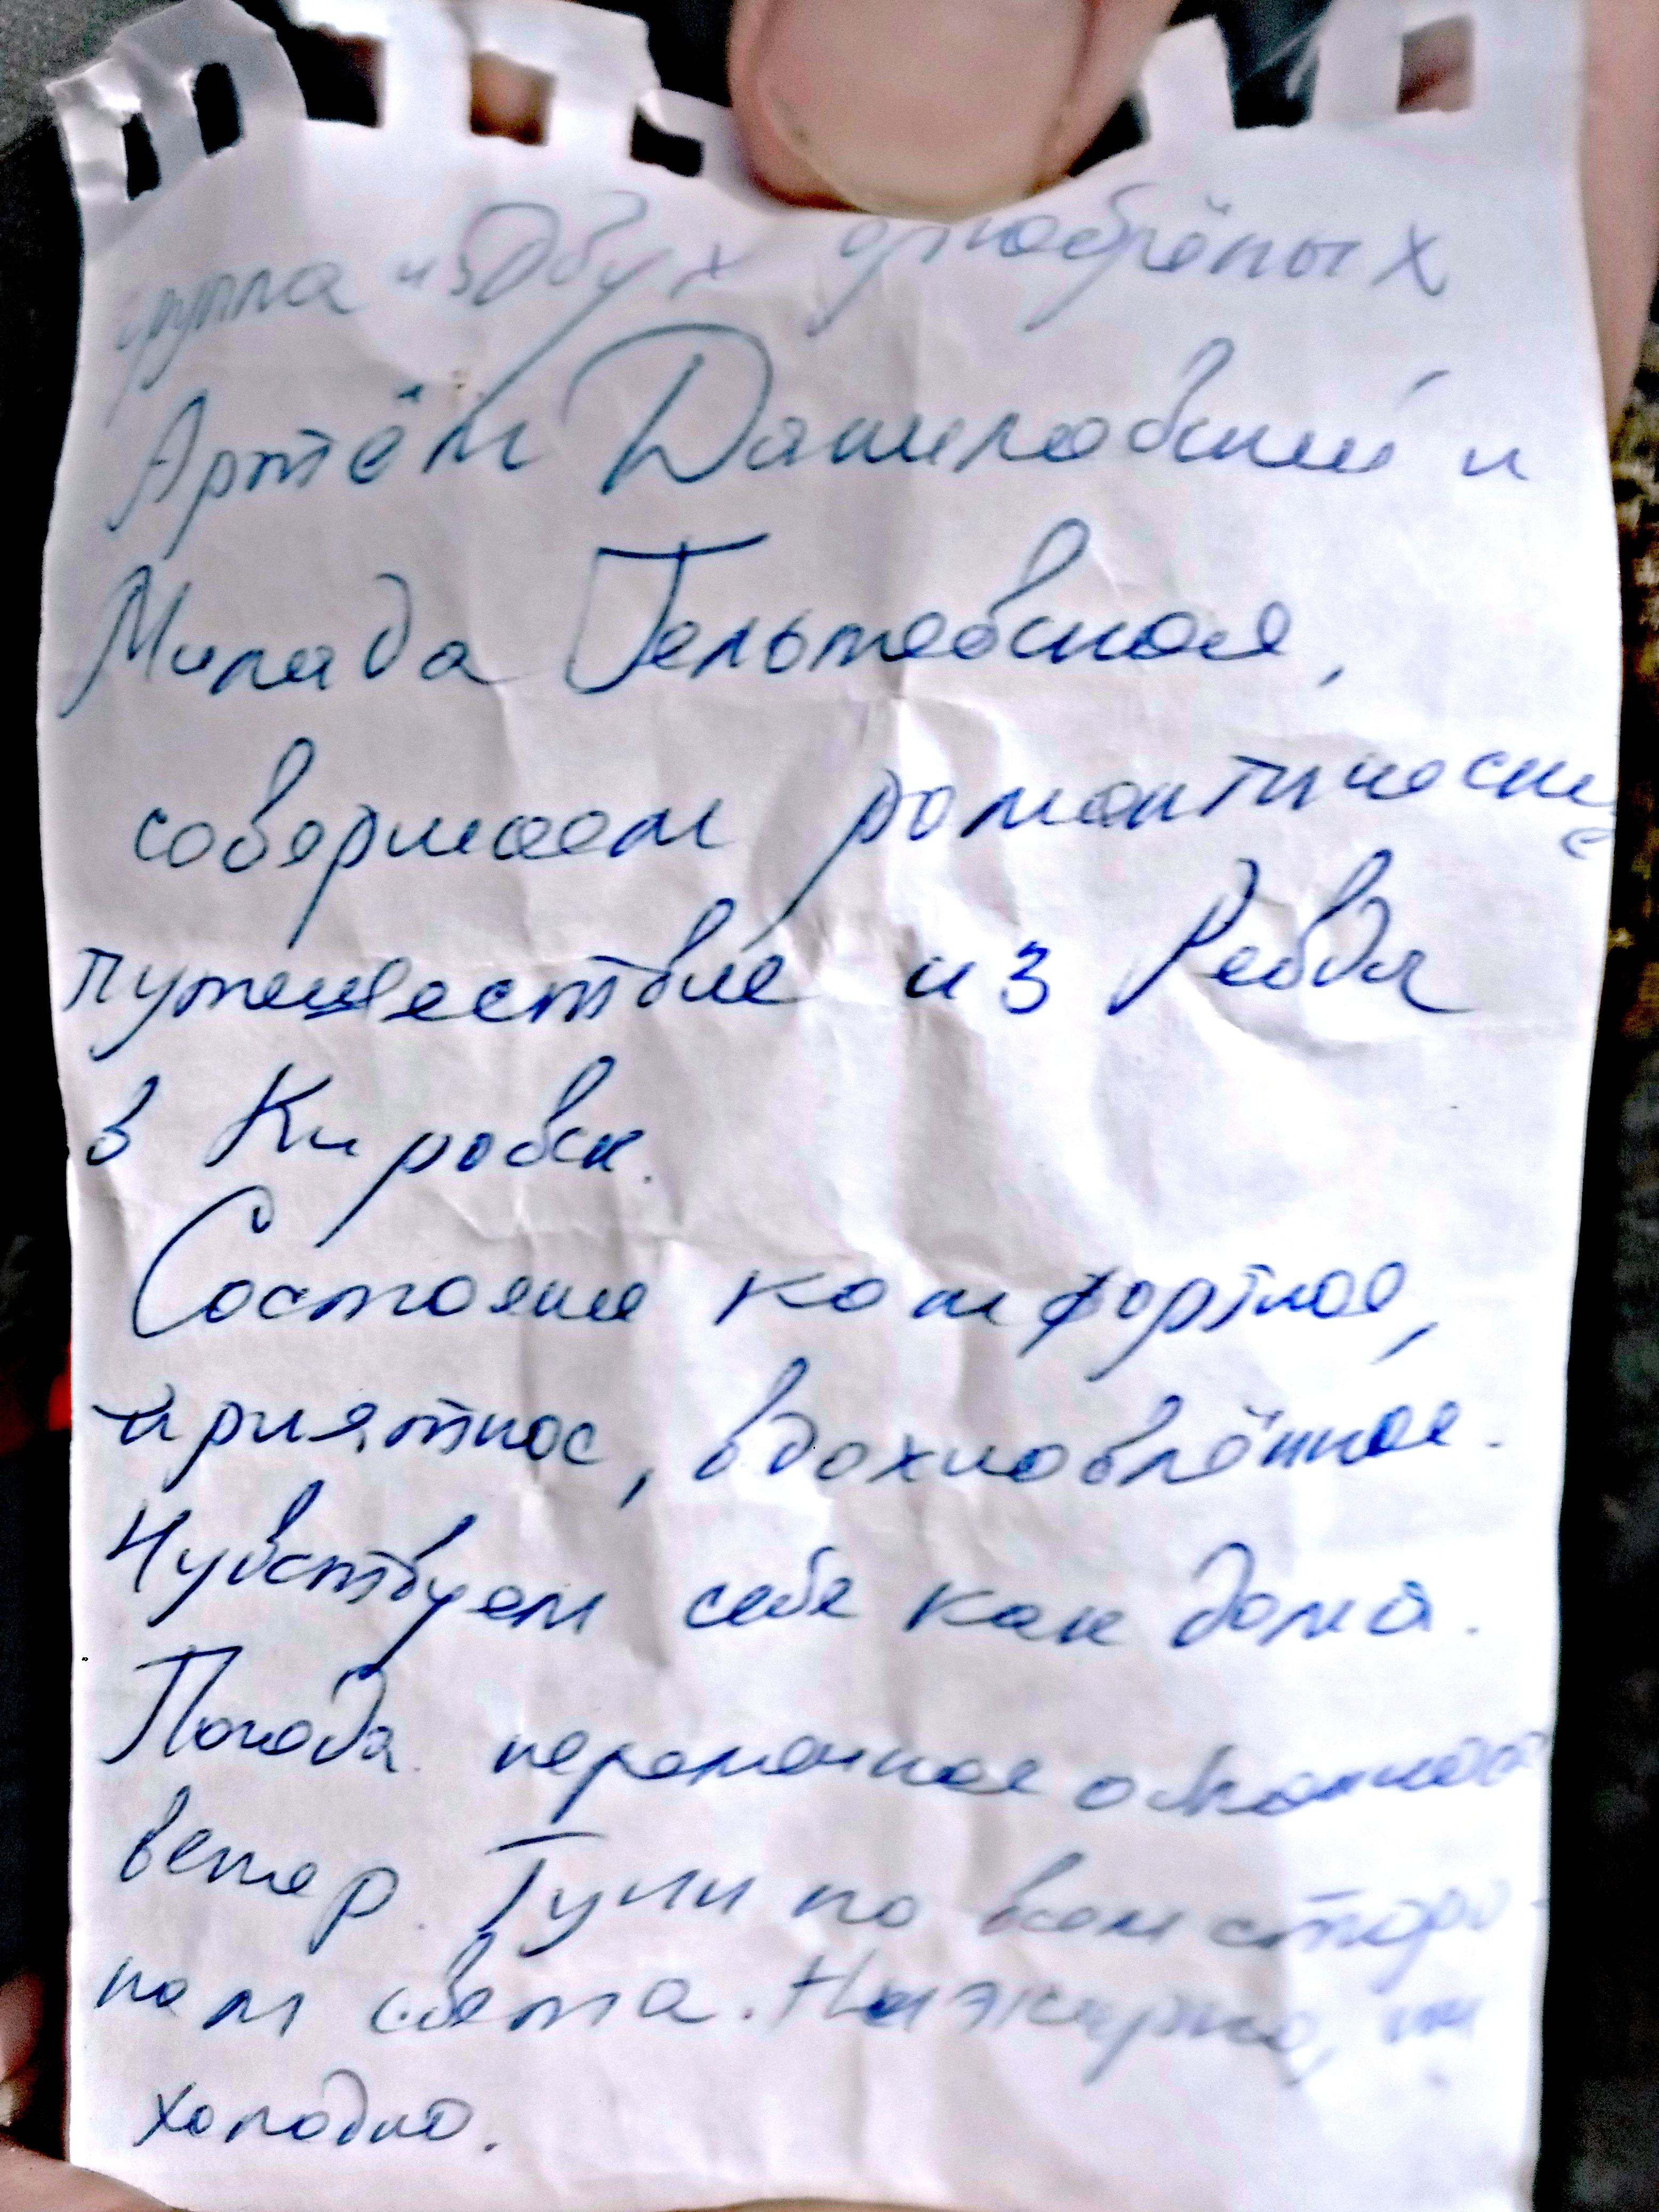 группа из Двух влюблённых
Артём Даниловский и
Милада Гельтевская,
совершаем романтическое
путешествие из Ревда
в Кировск.
Состояние комфортное,
приятное, вдохновлённое.
Чувствуем себя как дома.
Погода переменная облачность
ветер. Тучи по всем сторо-
нам света. Ни жарко, ни
холодно.